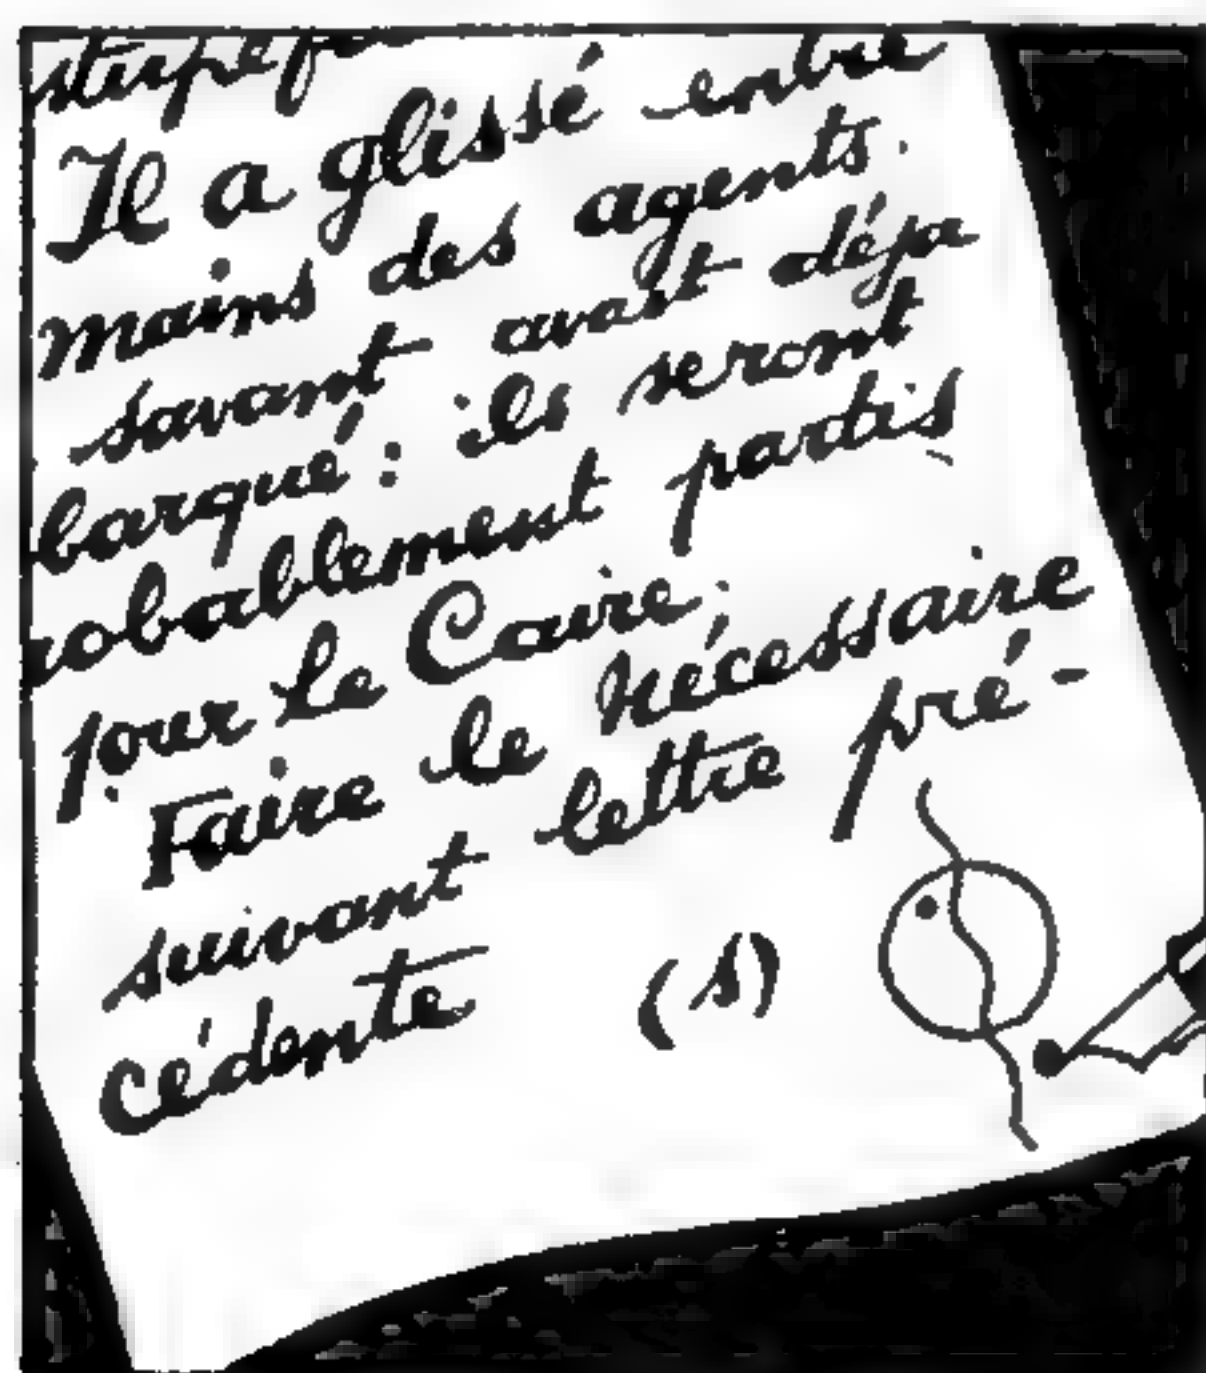 Il a glissé entre
mains des agents.
savant avait déja
barqué : ils seront
robablement partis
pour Le Caire.
Faire le nécessaire
suivant lettre pré-
cédente (s)